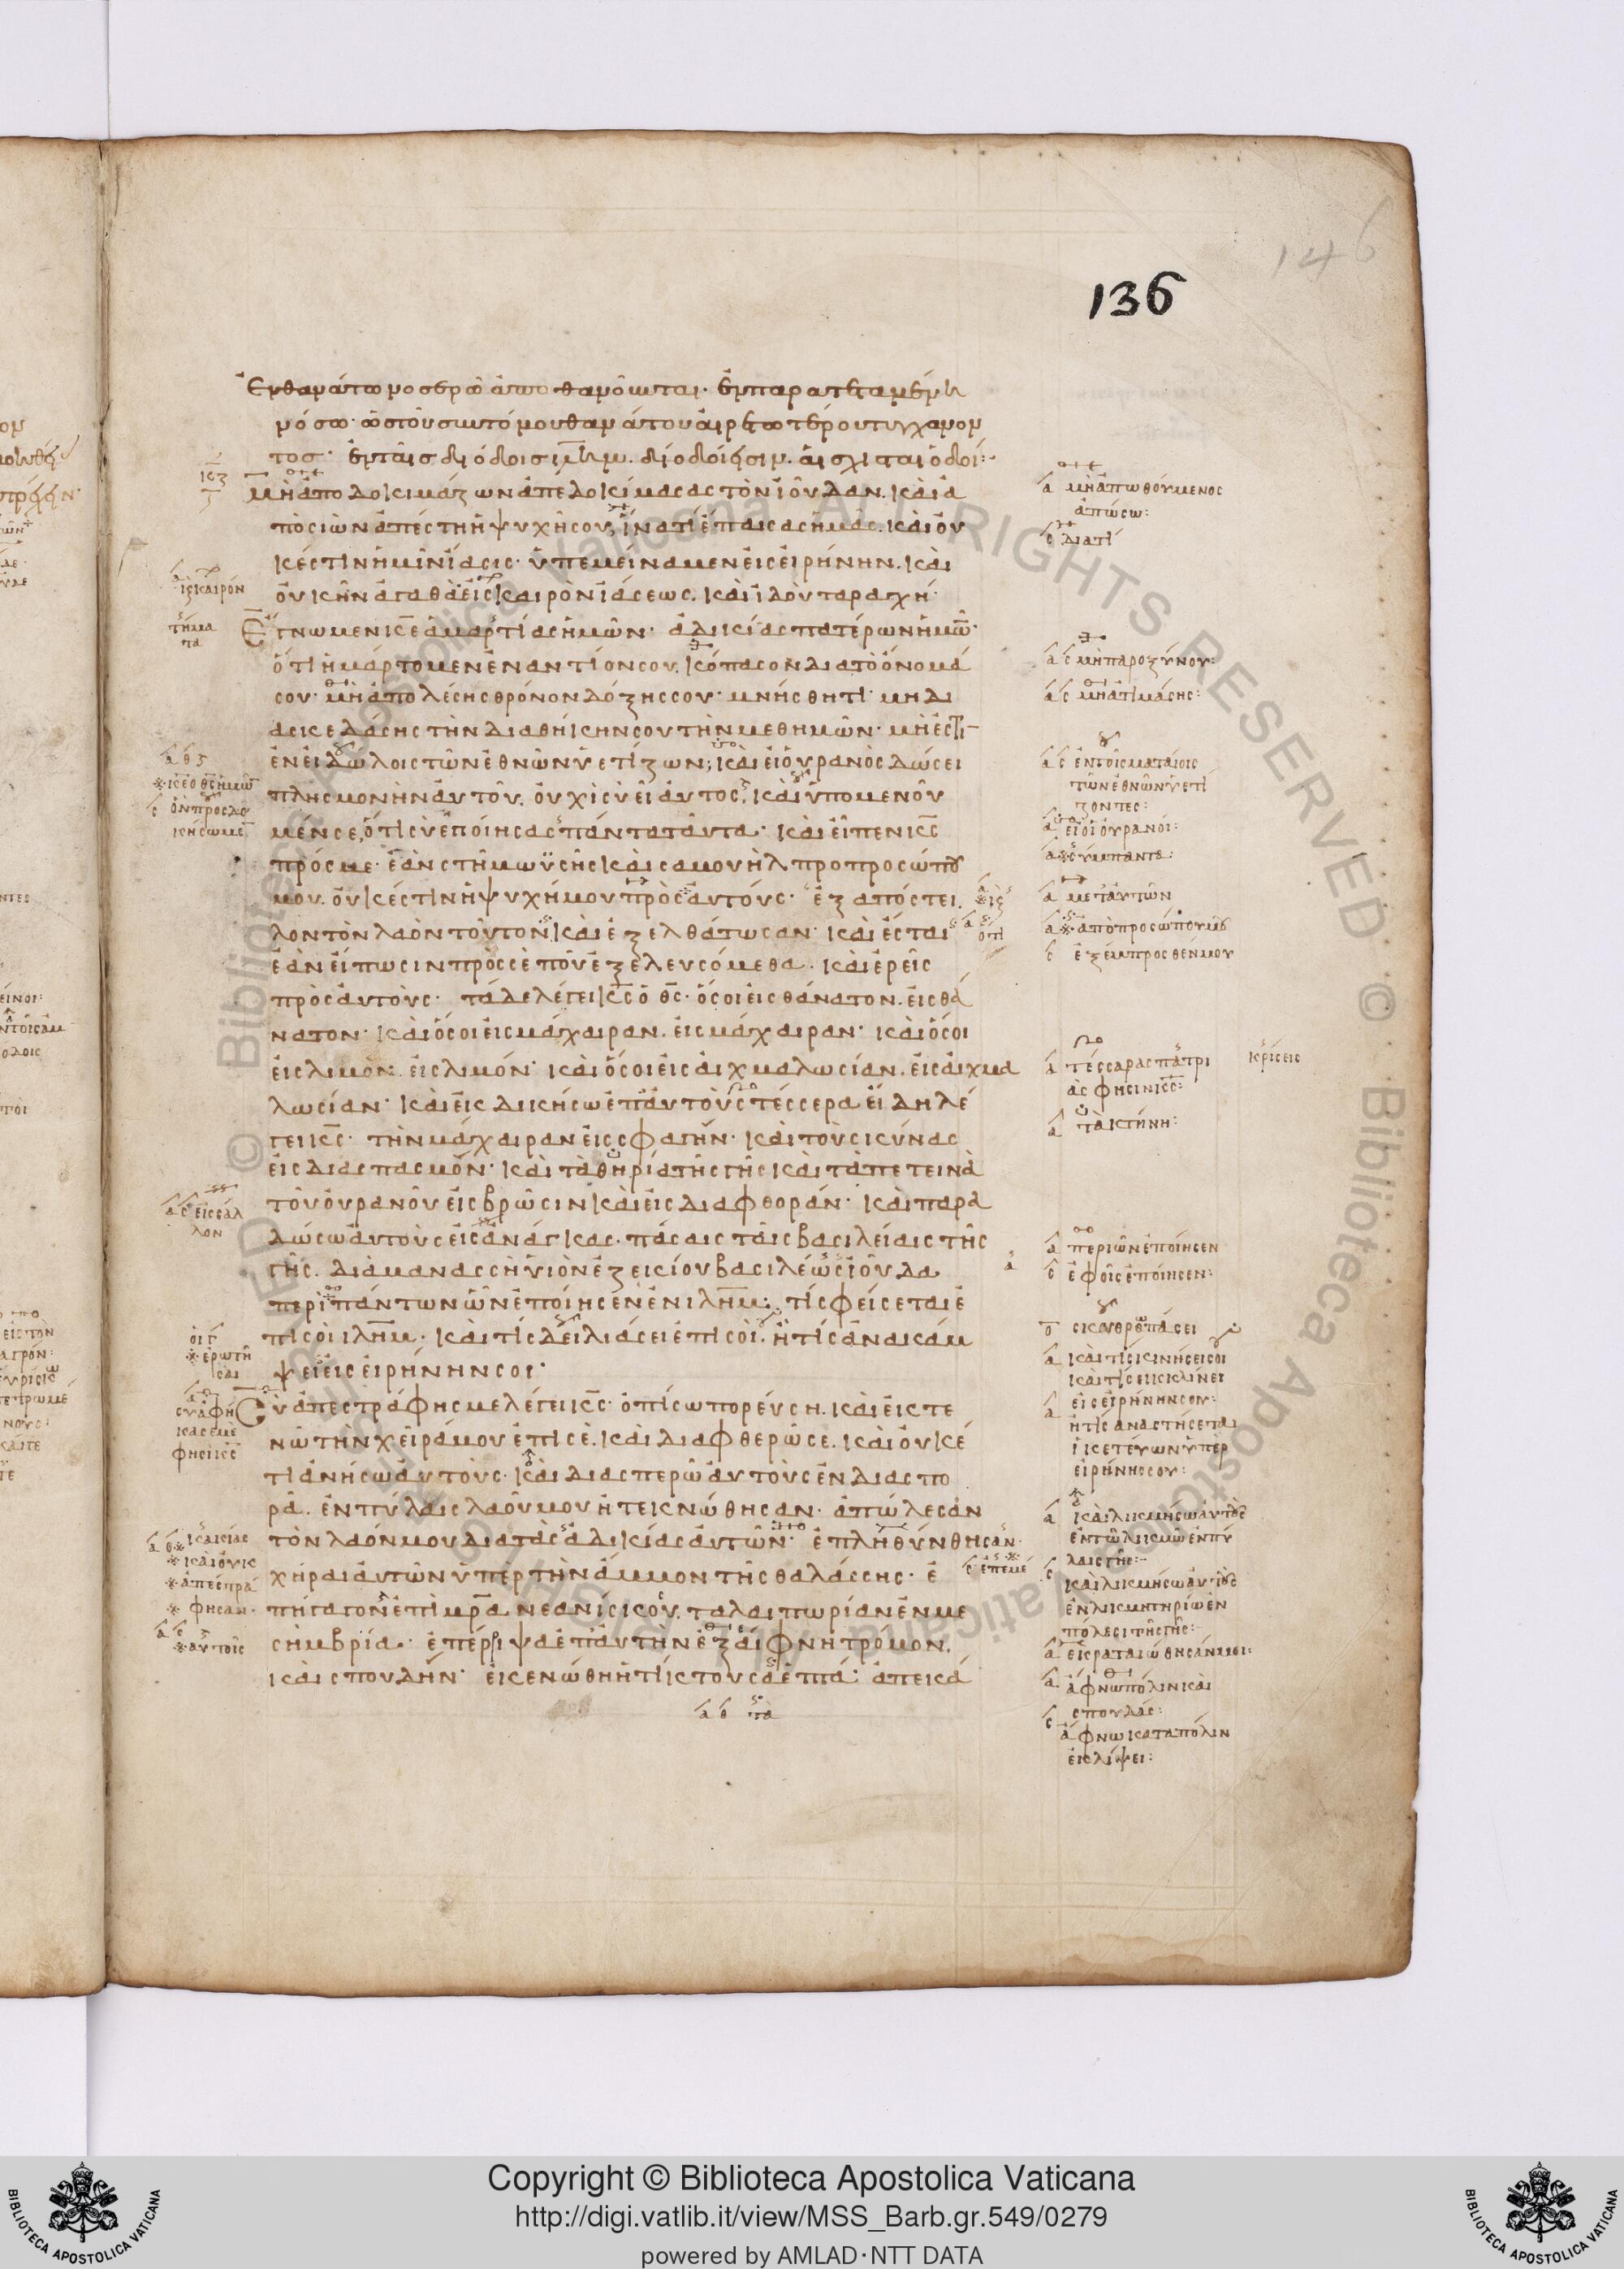 136
146
Ἐν θανάτω νοσερῶ ἀποθανοῦνται· ἐν παρατεταμένη
νόσω· ὡς τοῦ συντόμου θανάτου αἱρετωτέρου τυγχάνον
τος· ἐν ταῖς διόδοις ϊλημ. διοδοί εἰσιν. αἱ σχισταὶ ὁδοί:
μὴ ἀποδοκιμάζων ἀπεδοκίμασας τὸν ϊούδαν. καὶ ἀ
πὸ σιὼν ἀπέστη ἡ ψυχή σου; ἵνα τί ἔπαισας ἡμᾶς. καὶ οὐ
κ ἔστιν ἡμῖν ἴασις· ὑπεμείναμεν εἰς εἰρήνην. καὶ
οὐκ ἦν ἀγαθὰ εἰς καιρὸν ἰάσεως. καὶ ϊδοὺ ταραχή·
Ἔγνωμεν κε ἁμαρτίας ἡμῶν· ἀδικίας πατέρων ἡμῶ·
ὅτι ἡμάρτομεν ἐναντίον σου. κόπασον διὰ τὸ ὄνομά
σου· μὴ ἀπολέσης θρόνον δόξης σου· μνήσθητι· μὴ δι
ασκεδάσης τὴν διαθήκην σου τὴν μεθ ἡμῶν· μὴ ἔστι
ἐν εἰδώλοις τῶν ἐθνῶν ὑετίζων; καὶ εἰ οὐρανὸς δώσει
πλησμονὴν αὐτοῦ. οὐχὶ σὺ εἶ αὐτός; καὶ ὑπομενοῦ
μέν σε, ὅτι σὺ ἐποίησας πάντα ταῦτα· καὶ εἶπεν κς
πρός με· ἐὰν στῆ μωϋσῆς καὶ σαμουὴλ πρὸ προσώπου
μου. οὐκ ἔστιν ἡ ψυχή μου πρὸς αὐτούς· ἐξαπόστει
λον τὸν λαὸν τοῦτον καὶ ἐξελθάτωσαν· καὶ ἔσται
ἐὰν εἴπωσιν πρὸς σὲ ποῦ ἐξελευσόμεθα. καὶ ἐρεῖς
πρὸς αὐτούς· τάδε λέγει κς ὁ θς· ὅσοι εἰς θάνατον. εἰς θά
νατον· καὶ ὅσοι εἰς μάχαιραν. εἰς μάχαιραν· καὶ ὅσοι
εἰς λιμόν. εἰς λιμόν· καὶ ὅσοι εἰς αἰχμαλωσίαν. εἰς αἰχμα
λωσίαν· καὶ ἐκδικήσω ἐπ αὐτοὺς τέσσερα εἴδη λέ
γει κς· τὴν μάχαιραν εἰς σφαγήν· καὶ τοὺς κύνας
εἰς διασπασμόν· καὶ τὰ θηρία τῆς γῆς καὶ τὰ πετεινὰ
τοῦ οὐρανοῦ εἰς βρῶσιν καὶ εἰς διαφθοράν· καὶ παρα
δώσω αὐτοὺς εἰς ἀνάγκας· πάσαις ταῖς βασιλείαις τῆς
γῆς. διὰ μανασσῆ υἱὸν ἐζεκίου βασιλέως ϊούδα
περὶ πάντων ὧν ἐποίησεν ἐν ιλημ: τίς φείσεται ἐ
πὶ σοὶ ιλημ· καὶ τίς δειλιάσει ἐπὶ σοί. ἢ τίς ἀνακάμ
ψει εἰς εἰρήνην σοι·
Σὺ ἀπεστράφης με λέγει κς· ὀπίσω πορεύση. καὶ ἐκτε
νῶ τὴν χεῖρά μου ἐπὶ σέ. καὶ διαφθερῶ σε. καὶ οὐκέ
τι ἀνήσω αὐτούς· καὶ διασπερῶ αὐτοὺς ἐν διασπο
ρᾶ. ἐν πύλαις λαοῦ μου ἠτεκνώθησαν· ἀπώλεσαν
τὸν λαόν μου διὰ τὰς ἀδικίας αὐτῶν· ἐπληθύνθησαν
χῆραι αὐτῶν ὑπὲρ τὴν ἄμμον τῆς θαλάσσης· ἐ
πήγαγον ἐπὶ μρα νεανίσκου. ταλαιπωρίαν ἐν με
σημβρία· ἐπέρριψα ἐπ αὐτὴν ἐξαίφνης τρόμον.
καὶ σπουδήν· ἐκενώθη ἡ τίκτουσα ἑπτά· ἀπεκά
εἰς καιρόν
εἰς σάλ
λον
ἐρωτῆ
σαι
σὺ ἀφῆ
κας ἐμὲ
φησὶ κς
κακίας
καὶ οὐκ
ἀπεστρά
φησαν·
αὐτοῖς
μὴ ἀπωθούμενος
ἀπώσω:
διατί
μὴ παροξύνου:
μὴ ἀτιμάσης:
ἐν τοῖς ματαίοις
τῶν ἐθνῶν ὑετί
ζοντες:
εἰ οἱ οὐρανοί:
σύμπαντα:
μετ αὐτῶν
ἀπὸ προσώπου μου
ἐξ ἔμπροσθέν μου
τέσσαρας πατρι
ὰς φησὶν κς:
κρίσεις
τὰ κτήνη:
περὶ ὧν ἐποίησεν
ἐφ οἷς ἐποίησεν:
σκυθρωπάσει
καὶ τίς κινήσει σοι
καὶ τίς ἐκκλίνει
εἰς εἰρήνην σου:
ἢ τίς ἀναστήσεται
ἱκετεύων ὑπὲρ
εἰρήνης σου:
καὶ λικμήσω αὐτοὺς
ἐν τῶ λικμῶ ἐν πύ
λαις γῆς:
καὶ λικμήσω αὐτοὺς
ἐν λικμητηρίω ἐν
πόλεσι τῆς γῆς:
ἐκραταιώθησάν μοι:
ἄφνω πόλιν καὶ
σπουδάς:
ἄφνω κατὰ πόλιν
ἐκλίψει:
Copyright © Biblioteca Apostolica Vaticana
http://digi.vatlib.it/view/MSS_Barb.gr.549/0279
powered by AMLAD·NTT DATA
BIBLIOTECA APOSTOLICA VATICANA
BIBLIOTECA APOSTOLICA VATICANA